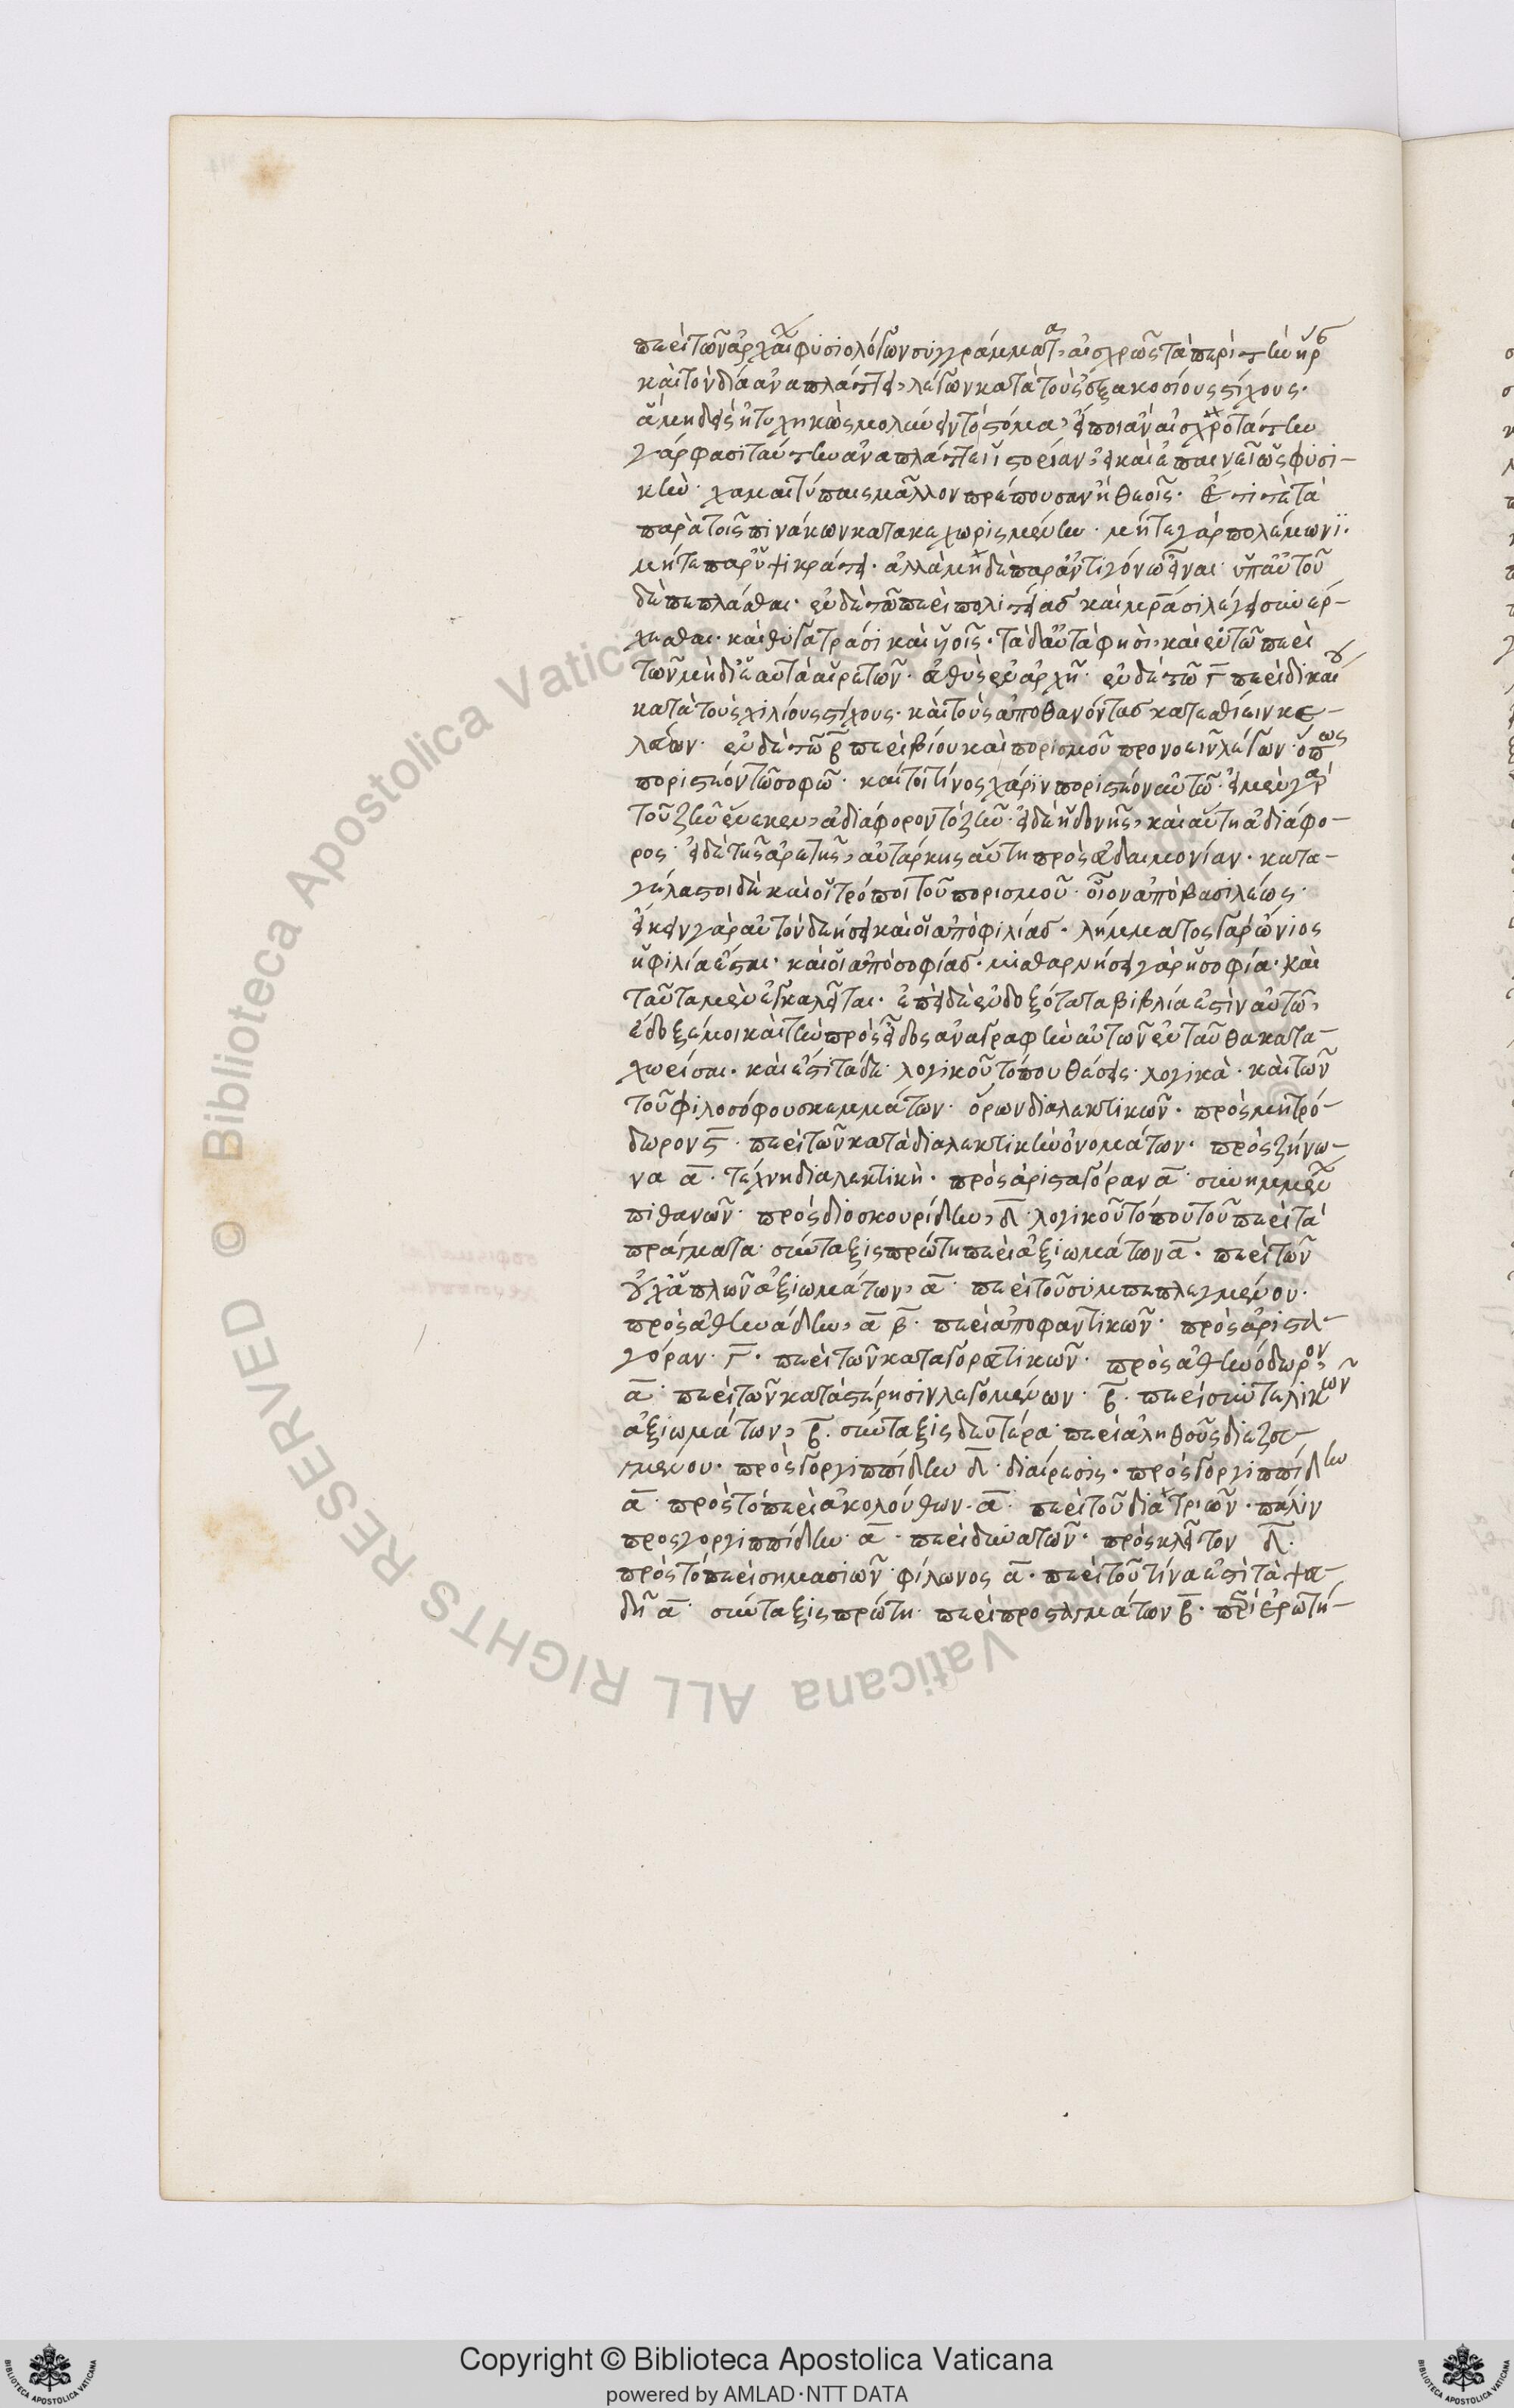 περὶ τῶν ἀρχαί φυσιολόγων συγγράμματ, αἰσχρῶς τὰ περὶ τὴν ἥρ
καὶ τὸν δία ἀναπλάττει, λέγων κατὰ τοὺς ἑξακοσίους στίχους·
ἃ μηδεὶς ἠτυχηκὼς μολύνει τὸ στόμα, εἴποι ἂν αἰσχροτάτην
γάρ φασι ταύτην ἀναπλάττει ἱστορίαν, εἰ καὶ ἐπαινεῖ ὡς φυσι-
κήν· χαμαιτύπαις μᾶλλον πρέπουσαν ἢ θεοῖς· ἔτι τε τὰ
παρὰ τοῖς πινάκων κατακεχωρισμένην· μήτε γὰρ πολέμωνι·
μήτε παρ' ὑψικράτει· ἀλλὰ μηδὲ παρ' ἀντιγόνω εἶναι· ὑπ' αὐτοῦ
δὲ πεπλάσθαι· ἐν δὲ τῶ περὶ πολιτείας καὶ μητράσι λέγει συνέρ-
χεσθαι· καὶ θυγατράσι καὶ υἱοῖς· τὰ δ' αὐτά φησι, καὶ ἐν τῶ περὶ
τῶν μὴ δι' ἑαυτὰ αἱρετῶν· εὐθὺς ἐν ἀρχῆ· ἐν δὲ τῶ γ περὶ δικαί
κατὰ τοὺς χιλίους στίχους· καὶ τοὺς ἀποθανόντας κατεσθίειν κε-
λεύων· ἐν δὲ τῶ β περὶ βίου καὶ πορισμοῦ προνοεῖν λέγων· ὅπως
ποριστέον τῶ σοφῶ· καίτοι τίνος χάριν ποριστέον αὐτῶ· εἰ μὲν γὰρ
τοῦ ζῆν ἕνεκεν, ἀδιάφορον τὸ ζῆν· εἰ δὲ ἡδονῆς, καὶ αὕτη ἀδιάφο-
ρος· εἰ δὲ τῆς ἀρετῆς, αὐτάρκης αὕτη πρὸς εὐδαιμονίαν· κατα-
γέλαστοι δὲ καὶ οἱ τρόποι τοῦ πορισμοῦ· οἷον ἀπὸ βασιλέως·
εἴκειν γὰρ αὐτὸν δεήσει καὶ οἱ ἀπὸ φιλίας· λήμματος γὰρ ὤνιος
ἡ φιλία ἔσται· καὶ οἱ ἀπὸ σοφίας· μισθαρνήσει γὰρ ἡ σοφία· καὶ
ταῦτα μὲν ἐγκαλεῖται· ἐπεὶ δὲ ἐνδοξότατα βιβλία ἐστὶν αὐτῶ,
ἔδοξέ μοι καὶ τὴν πρὸς εἶδος ἀναγραφὴν αὐτῶν ἐνταῦθα κατα-
χωρίσαι· καὶ ἔστι τάδε· λογικοῦ τόπου θέσεις· λογικὰ· καὶ τῶν
τοῦ φιλοσόφου σκεμμάτων· ὅρων διαλεκτικῶν· πρὸς μητρό-
δωρον ϛ· περὶ τῶν κατὰ διαλεκτικὴν ὀνομάτων· πρὸς ζήνω-
να α· τέχνη διαλεκτικὴ· πρὸς ἀρισταγόραν α· συνημμέν
πιθανῶν· πρὸς διοσκουρίδην, δ· λογικοῦ τόπου τοῦ περὶ τὰ
πράγματα· σύνταξις πρώτη περὶ ἀξιωμάτων α· περὶ τῶν
οὐχ ἁπλῶν ἀξιωμάτων, α· περὶ τοῦ συμπεπλεγμένου·
πρὸς ἀθηνάδην, α β· περὶ ἀποφαντικῶν· πρὸς ἀριστα-
γόραν· γ· περὶ τῶν καταγορευτικῶν· πρὸς ἀθηνόδωρον,
α· περὶ τῶν κατὰ στέρησιν λεγομένων· β· περὶ συντελικῶν
ἀξιωμάτων, β· σύνταξις δευτέρα· περὶ ἀληθοῦς διεζευ-
γμένου· πρὸς γοργιππίδην δ· διαίρεσις· πρὸς γοργιππίδην
α· πρὸς τὸ περὶ ἀκολούθων· α· περὶ τοῦ διὰ τριῶν· πάλιν
προς γοργιππίδην· α· περὶ δυνατῶν· πρὸς κλεῖτον δ·
πρὸς τὸ περὶ σημασιῶν φίλωνος α· περὶ τοῦ τίνα ἐστὶ τὰ ψευ-
δῆ α· σύνταξις πρώτη· περὶ προσταγμάτων β· περὶ ἐρωτή-
Copyright © Biblioteca Apostolica Vaticana
powered by AMLAD·NTT DATA
© Biblioteca Apostolica Vaticana ALL RIGHTS RESERVED
BIBLIOTECA APOSTOLICA VATICANA
BIBLIOTECA APOSTOLICA VATICANA